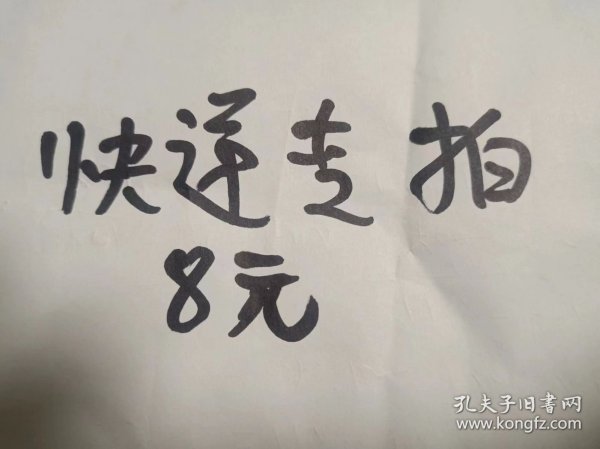 快递专拍
8元
孔夫子旧書网
www.kongfz.com